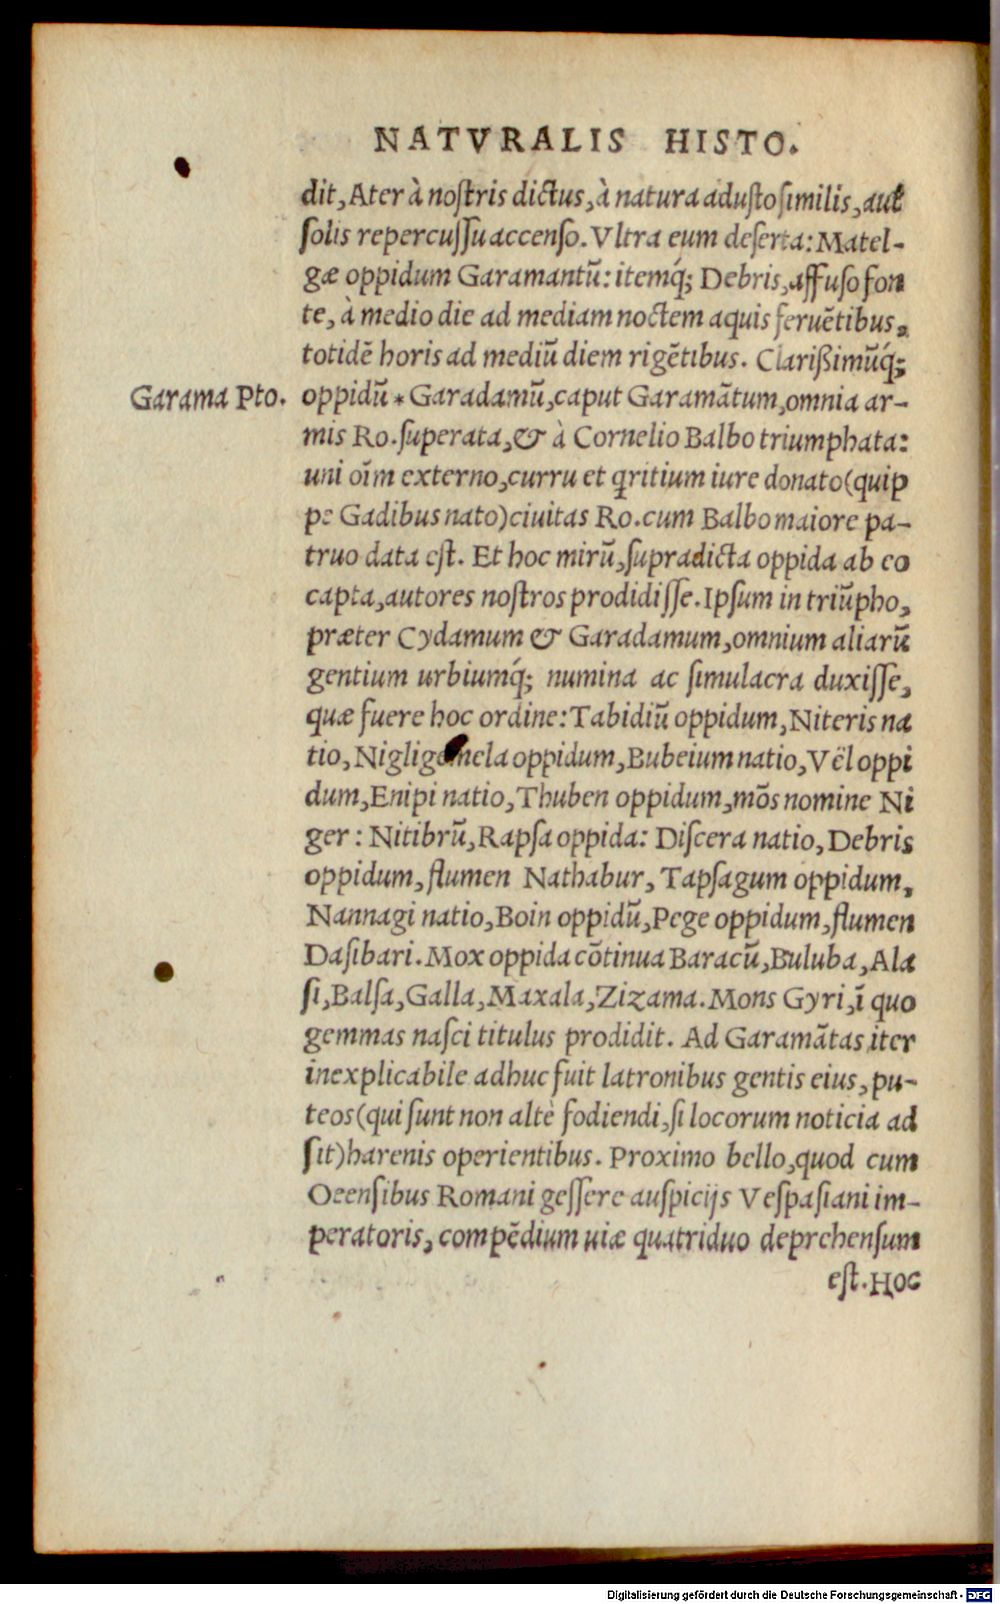 NATVRALIS HISTO.
dit, Ater à nostris dictus, à natura adusto similis, aut
solis repercussu accenso. Vltra eum deserta: Matel-
gæ oppidum Garamantũ: itemq́; Debris, affuso fon
te, à medio die ad mediam noctem aquis feruẽtibus,
totidẽ horis ad mediũ diem rigẽtibus. Clarißimũq́;
Garama Pto. oppidũ * Garadamũ, caput Garamãtum, omnia ar-
mis Ro. superata, & à Cornelio Balbo triumphata:
uni oĩm externo, curru et qritium iure donato (quip
pe Gadibus nato) ciuitas Ro. cum Balbo maiore pa-
truo data est. Et hoc mirũ, supradicta oppida ab eo
capta, autores nostros prodidisse. Ipsum in triũpho,
præter Cydamum & Garadamum, omnium aliarũ
gentium urbiumq́; numina ac simulacra duxisse,
quæ fuere hoc ordine: Tabidiũ oppidum, Niteris na
tio, Nigligemela oppidum, Bubeium natio, Vël oppi
dum, Enipi natio, Thuben oppidum, mõs nomine Ni
ger: Nitibrũ, Rapsa oppida: Discera natio, Debris
oppidum, flumen Nathabur, Tapsagum oppidum,
Nannagi natio, Boin oppidũ, Pege oppidum, flumen
Dasibari. Mox oppida cõtinua Baracũ, Buluba, Ala
si, Balsa, Galla, Maxala, Zizama. Mons Gyri, ĩ quo
gemmas nasci titulus prodidit. Ad Garamãtas iter
inexplicabile adhuc fuit latronibus gentis eius, pu-
teos (qui sunt non altè fodiendi, si locorum noticia ad
sit) harenis operientibus. Proximo bello, quod cum
Oeensibus Romani gessere auspicijs Vespasiani im-
peratoris, compẽdium uiæ quatriduo deprehensum
est. Hoc
Digitalisierung gefördert durch die Deutsche Forschungsgemeinschaft - DFG